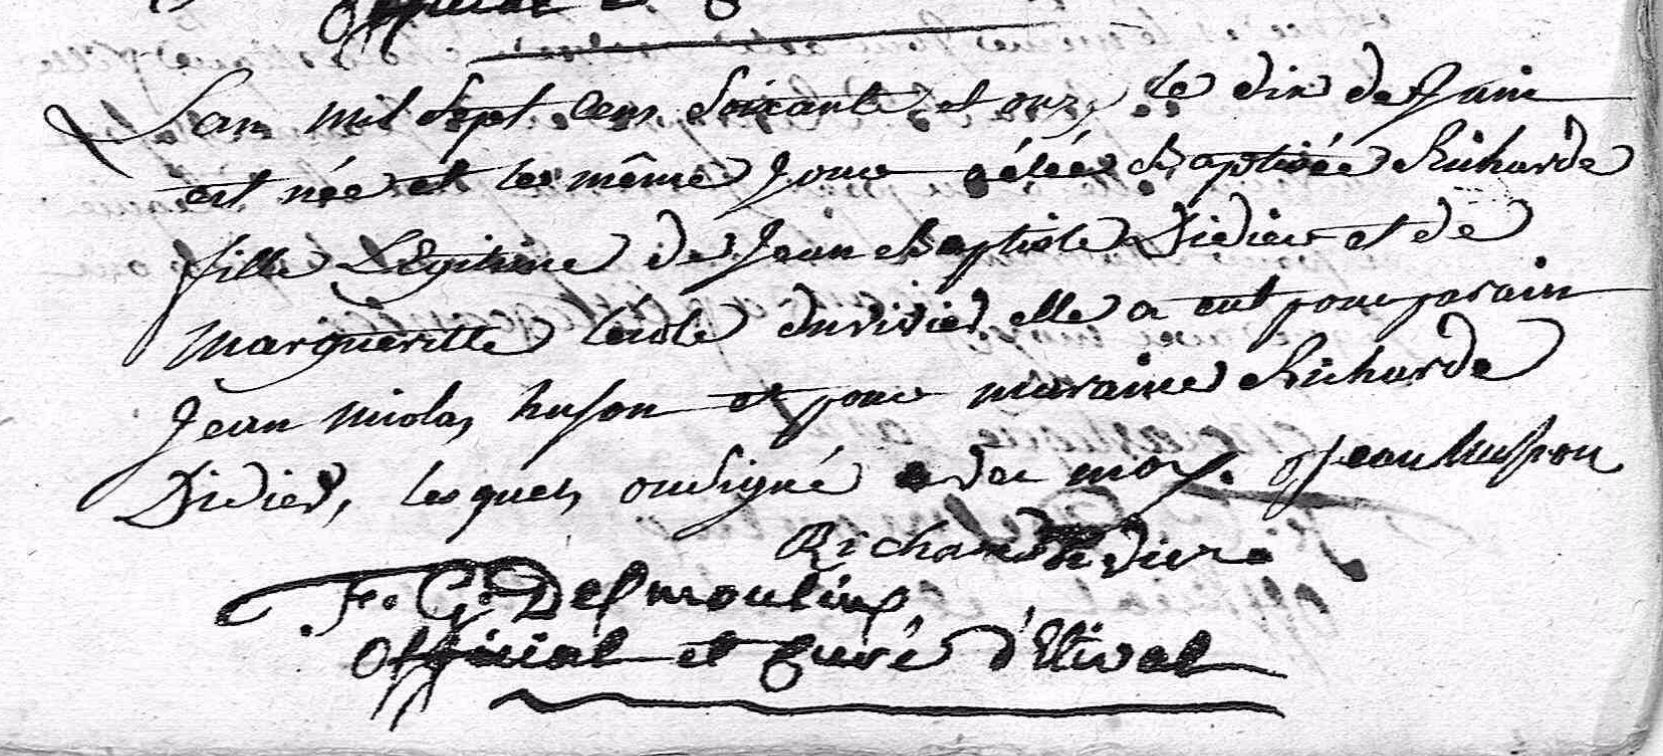 Official et
Lan mil Sept Cens Soixante et onze le dix de Juin
est née et le même Jour a été Baptisée Richarde
fille Légitime de Jean Baptiste Didier et de
Margueritte elle a eut pour parain
Jean Nicolas huson et pour maraine Richarde
Didier, lesquels ont signé avec moy. Jean husson
Richarde didiere
F. G. Desmoulins
Official et Curé d'Etival